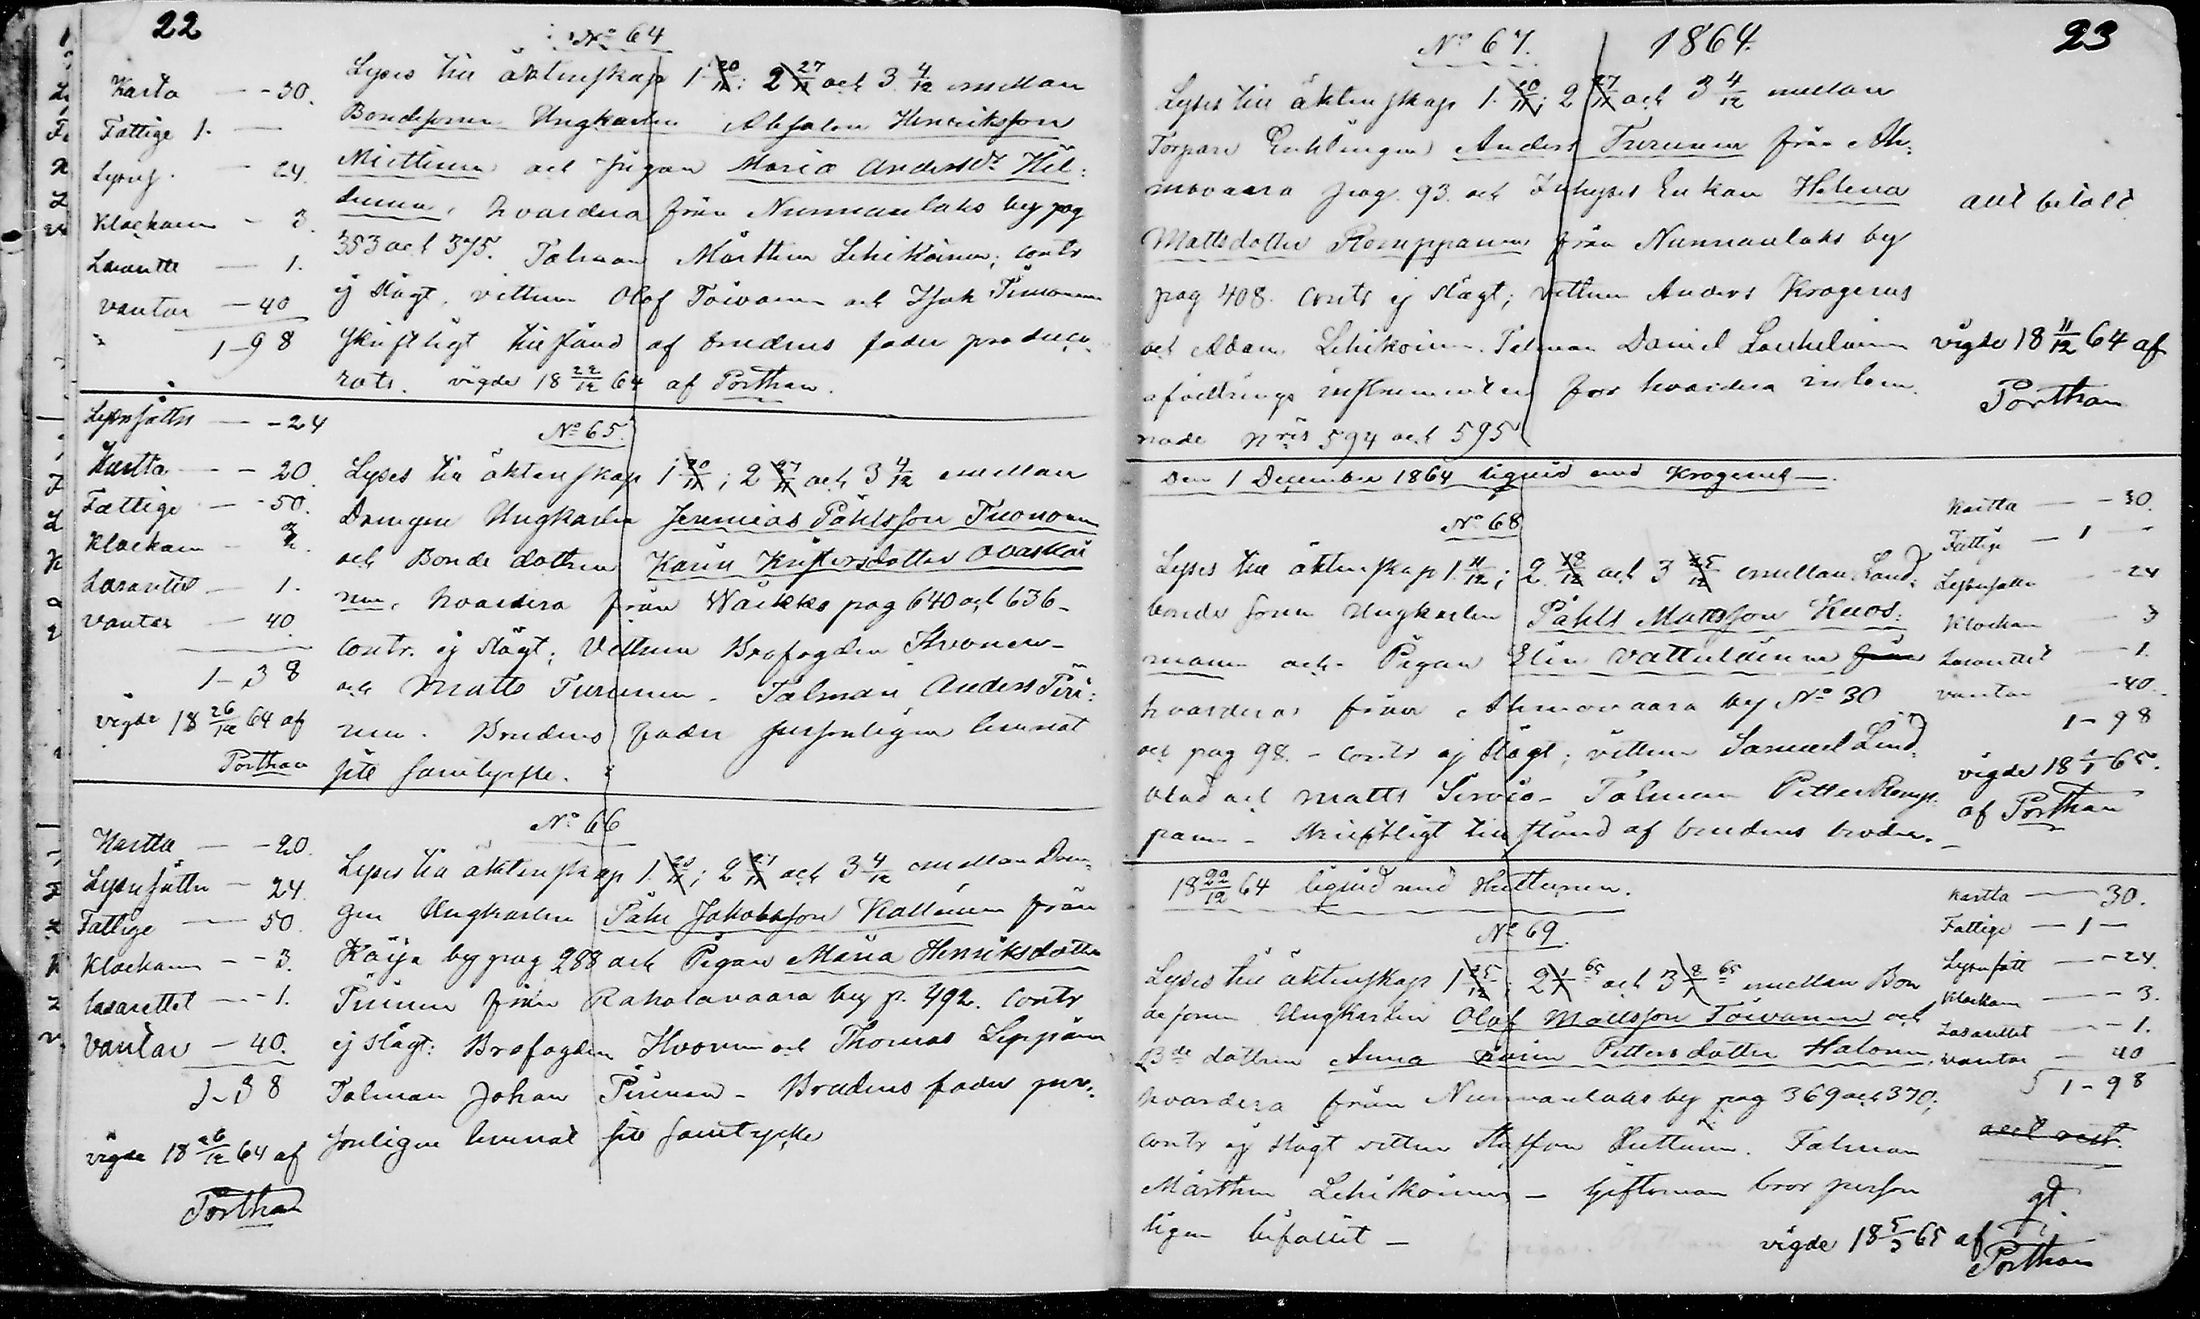 22
No 64
Karta - 30.
Fattige 1. -
Lysng. - 24.
Klockarn - 3.
Lasarette - 1.
vantar - 40
1-98
Lyses till äktenskap 1 20/11; 2 27/11 och 3 4/12 emellan
Bondesonen Ungkarlen Absalon Henriksson
Miettinen och pigan Maria Andersdr Hil-
tunen, hvardera från Nunnanlaks by pag
353 och 375. Talman Mårthen Lehikoinen; contr
ej slägt, vittnen Olof Toivanen och Isak Timonen
skriftligt tillstånd af brudens fader produce-
rats. vigde 18 22/12 64 af Porthan.
No 65.
Lysnsätter - 24
Kartta - 20.
Fattige - 50.
Klockarn - 3.
Lasarettet - 1.
vantar - 40
1-38
vigde 18 26/12 64 af
Porthan
Lyses till äktenskap 1 20/11; 2 27/11 och 3 4/12 emellan
Drengen Ungkarlen Jeremias Påhlsson Tuononen
och Bonde dottren Karin Kristersdotter Ovaskai
nen, hvardera från Waikko pag 640 och 636-
contr. ej slägt; Vittnen Brofogden Ihvonen-
och Matts Turunen. Talman Anders Piri-
nen. Brudens fader personligen lemnat
sitt samtycke.
No 66
Kartta - 20.
Lysnsätter - 24
Fattige - 50.
Klockarn - 3.
lasarettet - 1.
Vantar - 40.
1-38
vigde 18 26/12 64 af
Porthan
Lyses till äktenskap 1. 20/11; 2 27/11 och 3 4/12 emellan Dren-
gen Ungkarlen Påhl Jakobsson Kallinen från
Käijä by pag 288 och Pigan Maria Henriksdotter
Piirinen från Raholanvaara by p. 492. contr
ej slägt: Brofogden Ihvonen och Thomas Leppänen
Talman Johan Piirinen - Brudens fader per-
sonligen lemnat sitt samtycke
No 67. 1864. 23
Lyses till äktenskap 1. 20/11; 2 27/11 och 3 4/12 mellan
Torpare Enklingen Anders Turunen från Ah-
movaara pag. 93. och Inhyses Enkan Helena
Mattsdotter Romppanen från Nunnanlaks by
pag 408. contr ej slägt; vittnen Anders Krogerus
och Adam Lehikoinen. Talman Daniel Laukalainen
afvittrings instrumenten for hvardera inlem-
nade Nris 594 och 595
allt betalt.
vigde 18 11/12 64 af
Porthan
Den 1 December 1864 liquid med Krogerus -.
No 68
Lyses till äktenskap 1. 11/12; 2. 18/12 och 3 25/12 emellan Land-
bonde sonen Ungkarlen Påhls Mattsson Kuos-
manen och Pigan Elin Vattulainen från
hvarderas från Ahmovaara by No 30
och pag 98. - contr ej slägt; vittnen Samuel Lind-
blad och Matts Sirviö - Talman Petter Romp-
panen - Skriftligt tillstånd af brudens broder. -
Kartta - 30.
Fattige - 1 -
Lysnsätter - 24
Klockarn - 3
Lasarettet - 1.
vantar - 40.
1-98
vigde 18 1/1 65.
af Porthan
18 22/12 64 liquid med Huttunen.
No 69.
Lyses till äktenskap 1 25/12; 2 1/1 65 och 3 8/1 65 emellan Bon
desonen Ungkarlen Olof Mattsson Toivanen och
Bde dottren Anna Karin Pettersdotter Halonen,
hvardera från Nunnanlaks by pag 369 och 370;
contr ej slägt vittnen Staffan Huttunen. Talman
Mårthen Lehikoinen - Giftoman bror person
ligen bifallit - vigde 18 5/3 65 af
Kartta - 30.
Fattige - 1 -
Lysnsätt - 24.
Klockarn - 3.
Lasarettet - 1.
vantar - 40
1-98
allt rest.
gt.
Porthan